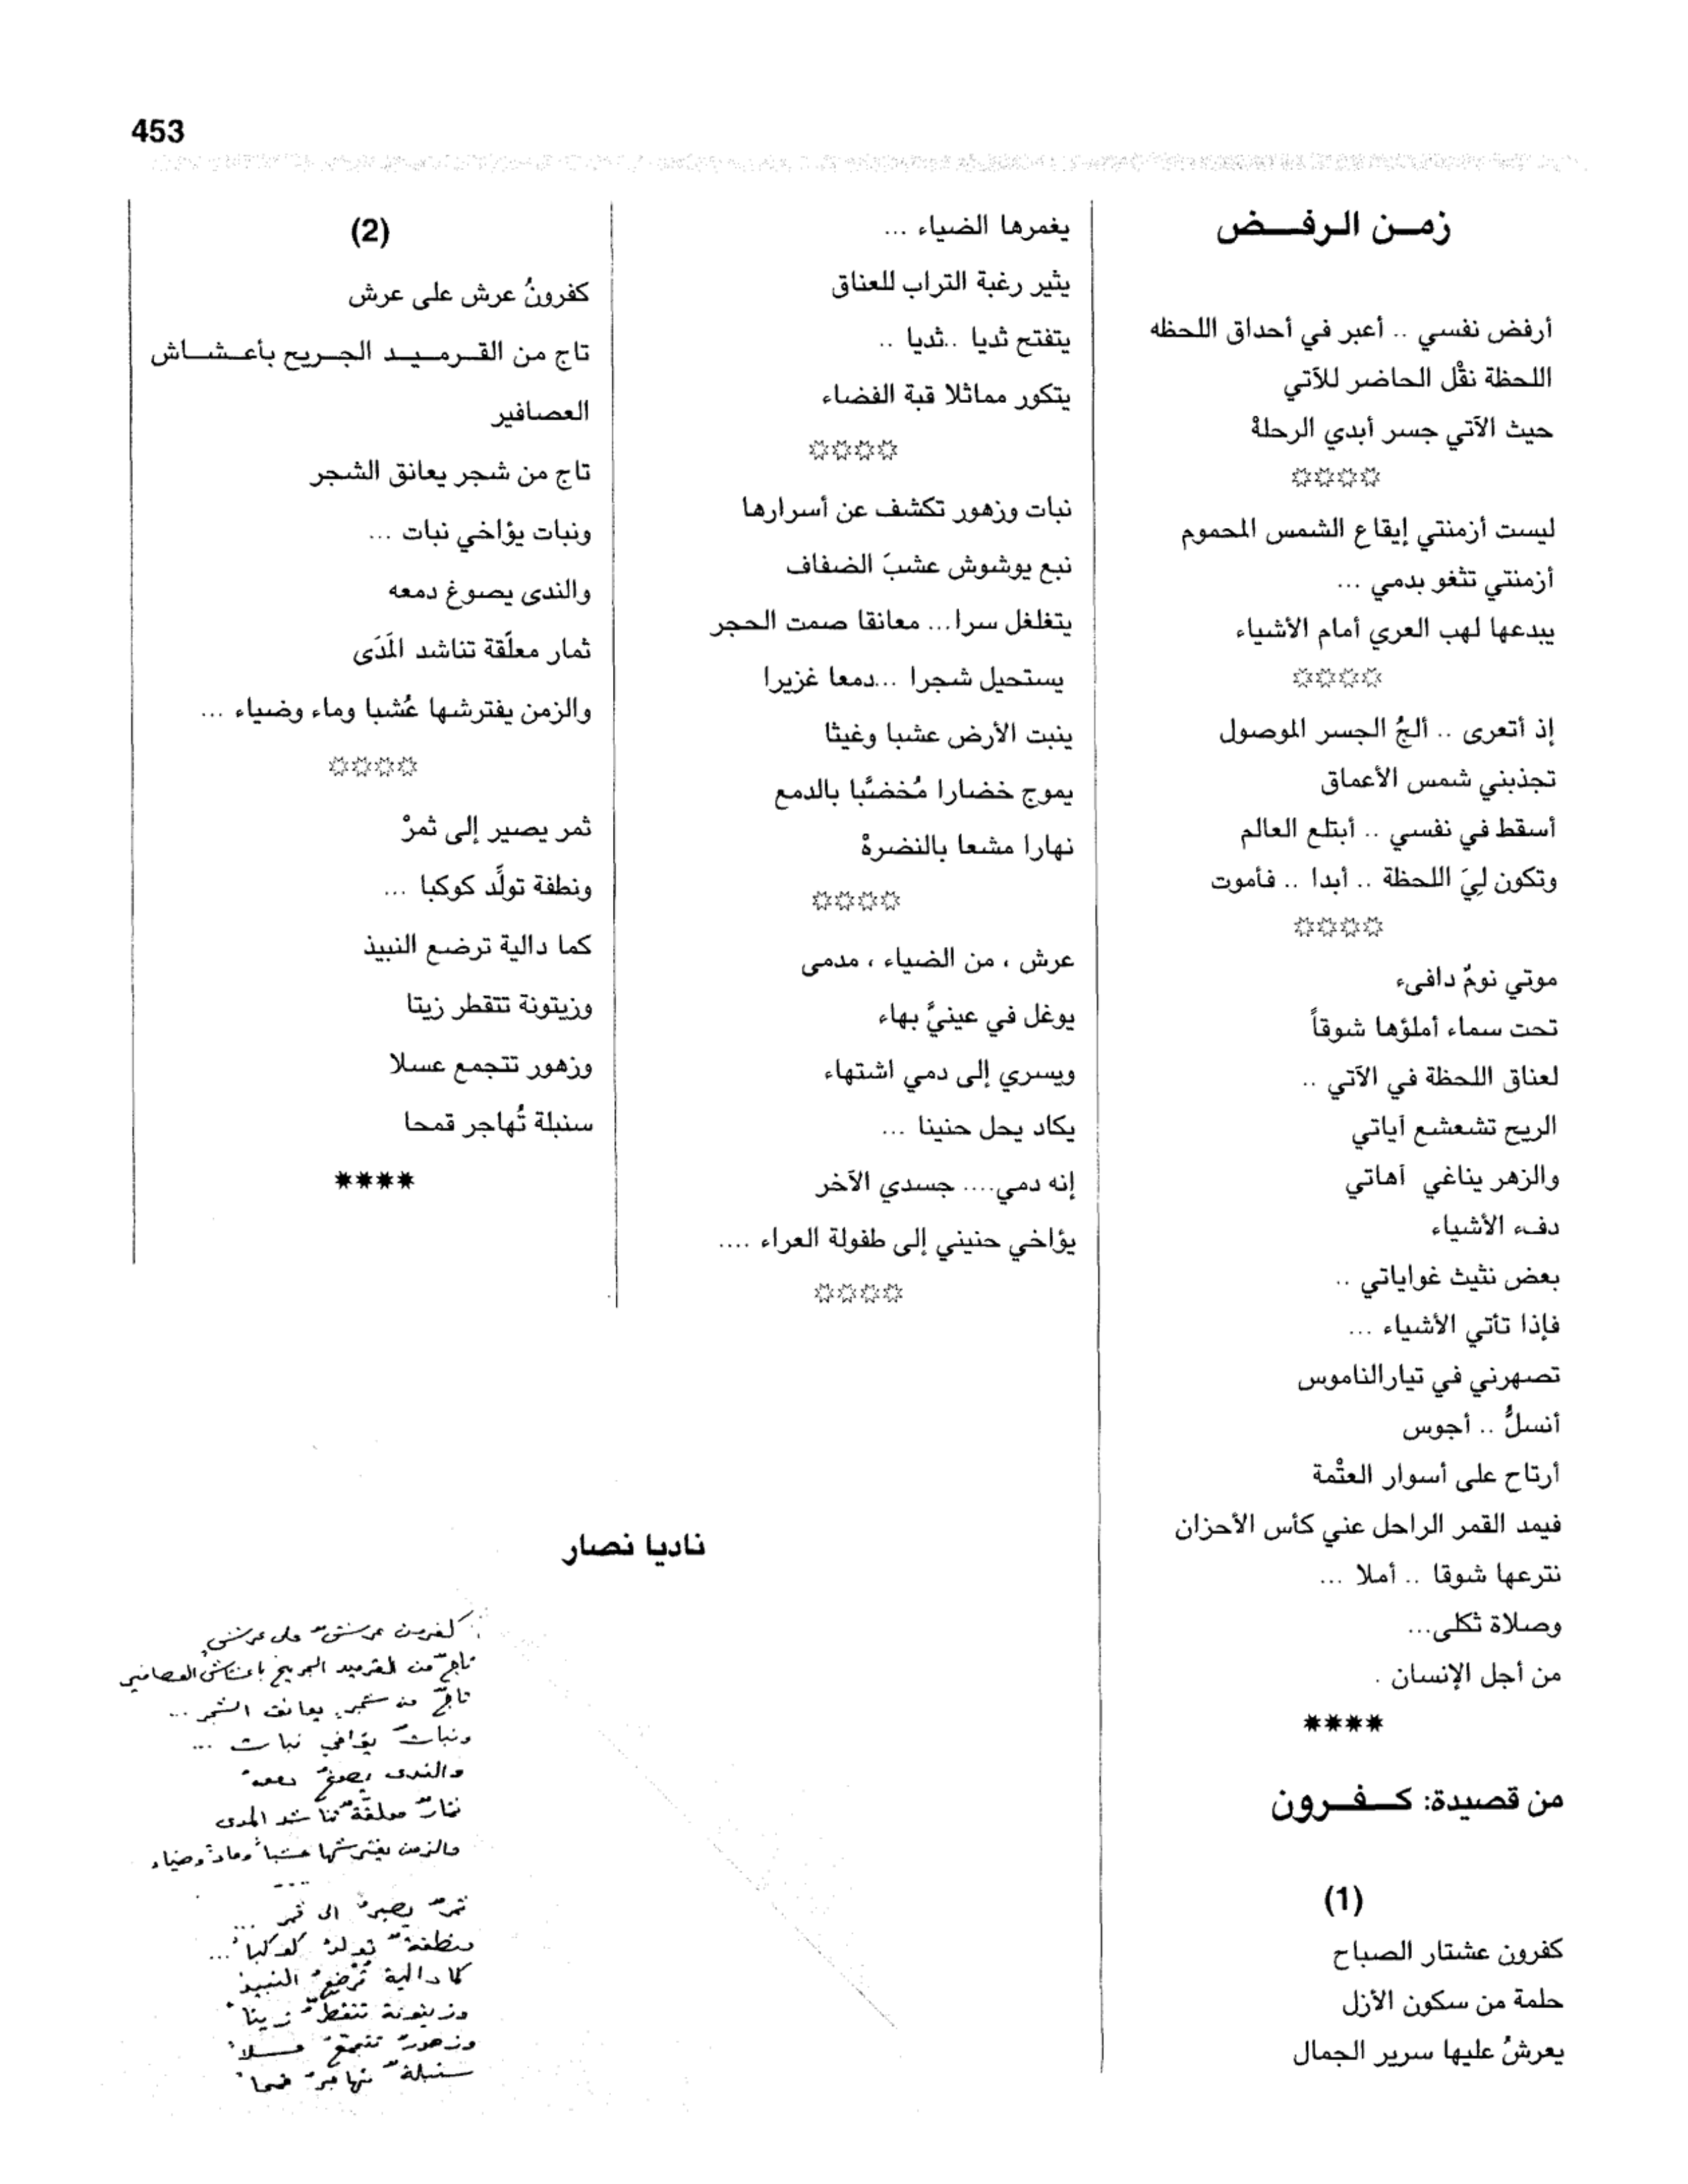 453
زمن الرفض
أرفض نفسي .. أعبر في أحداق اللحظه
اللحظة نقْل الحاضر للآتي
حيث الآتي جسر أبدي الرحلةْ
****
ليست أزمنتي إيقاع الشمس المحموم
أزمنتي تثغو بدمي ...
يبدعها لهب العري أمام الأشياء
****
إذ أتعرى .. ألجُ الجسر الموصول
تجذبني شمس الأعماق
أسقط في نفسي .. أبتلع العالم
وتكون لِيَ اللحظة .. أبدا .. فأموت
****
موتي نومٌ دافىء
تحت سماء أملؤها شوقاً
لعناق اللحظة في الآتي ..
الريح تشعشع آياتي
والزهر يناغي آهاتي
دفء الأشياء
بعض نثيث غواياتي ..
فإذا تأتي الأشياء ...
تصهرني في تيارالناموس
أنسلُّ .. أجوس
أرتاح على أسوار العتْمة
فيمد القمر الراحل عني كأس الأحزان
نترعها شوقا .. أملا ...
وصلاة ثكلى...
من أجل الإنسان .
****
من قصيدة: كفرون
(1)
كفرون عشتار الصباح
حلمة من سكون الأزل
يعرشُ عليها سرير الجمال
يغمرها الضياء ...
يثير رغبة التراب للعناق
يتفتح ثديا ..ثديا ..
يتكور مماثلا قبة الفضاء
****
نبات وزهور تكشف عن أسرارها
نبع يوشوش عشبَ الضفاف
يتغلغل سرا... معانقا صمت الحجر
يستحيل شجرا ...دمعا غزيرا
ينبت الأرض عشبا وغيثا
يموج خضارا مُخضبًّا بالدمع
نهارا مشعا بالنضرةْ
****
عرش ، من الضياء ، مدمى
يوغل في عينيَّ بهاء
ويسري إلى دمي اشتهاء
يكاد يحل حنينا ...
إنه دمي.... جسدي الآخر
يؤاخي حنيني إلى طفولة العراء ....
****
(2)
كفرونُ عرش على عرش
تاج من القرميد الجريح بأعشاش
العصافير
تاج من شجر يعانق الشجر
ونبات يؤاخي نبات ...
والندى يصوغ دمعه
ثمار معلّقة تناشد المَدَى
والزمن يفترشها عُشبا وماء وضياء ...
****
ثمر يصير إلى ثمرْ
ونطفة تولِّد كوكبا ...
كما دالية ترضع النبيذ
وزيتونة تتقطر زيتا
وزهور تتجمع عسلا
سنبلة تُهاجر قمحا
****
ناديا نصار
كفرون عرشٌ على عرشٍ
تاجٌ من القرميد الجريح بأعشاش العصافير
تاجٌ من شجر يعانق الشجر ...
ونباتٌ يؤاخي نبات ...
والندى يصوغُ دمعه
ثمارٌ معلّقةٌ تناشد المدى
والزمن يفترشها عشباً وماءً وضياء
....
ثمرٌ يصيرُ الى ثمر ...
ونطفةٌ تولدُ كوكباً ...
كما دالية تُرضعُ النبيذ
وزيتونة تتقطرُ زيتاً
وزهورٌ تتجمّعُ عسلاً
سنبلةٌ تهاجرُ قمحاً